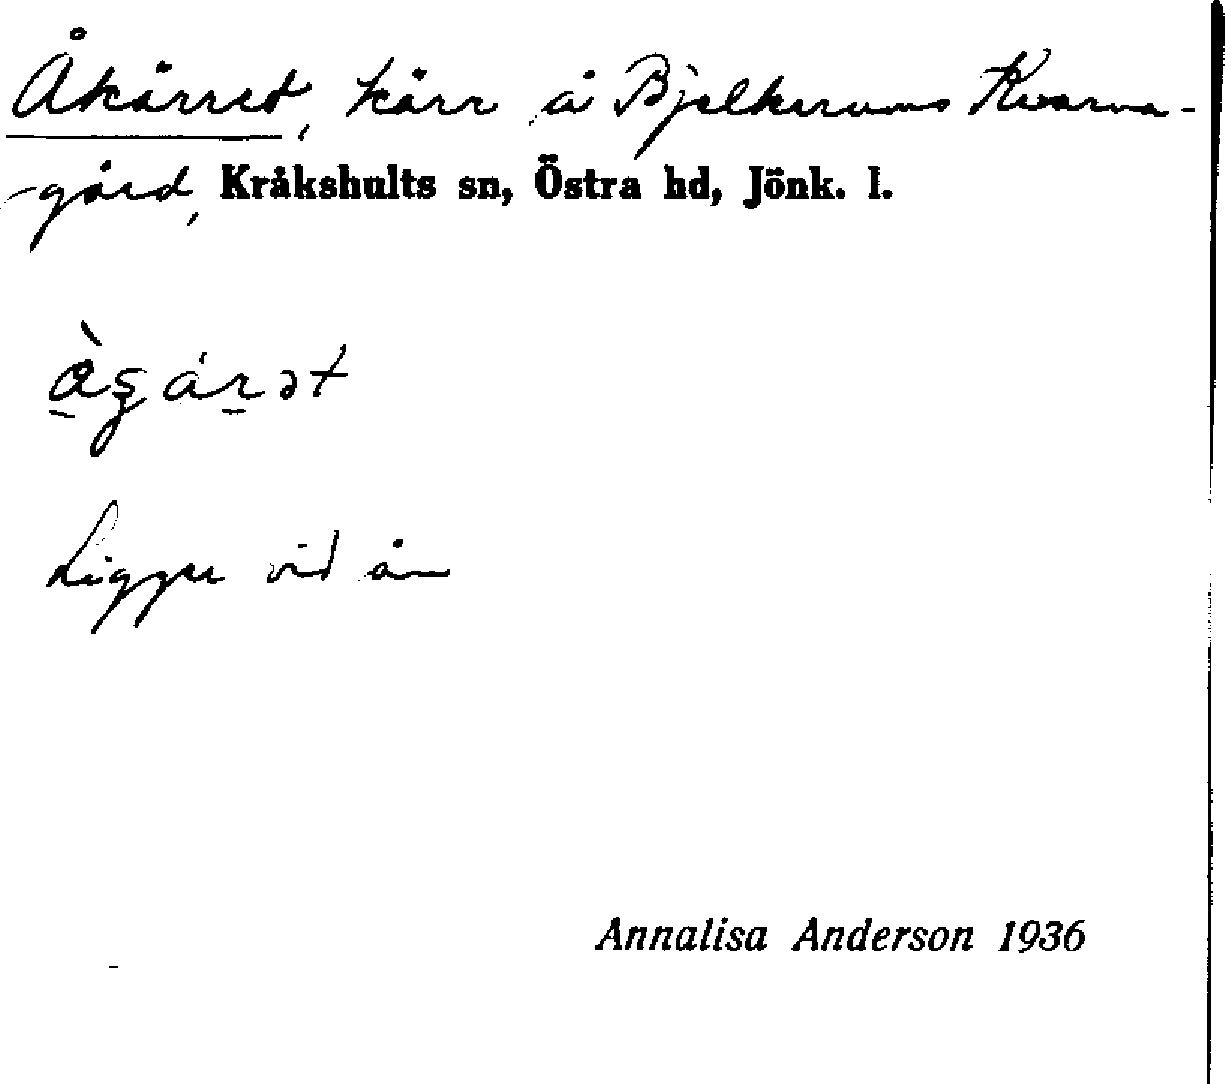 Åkärret, kärr å Bjelkerums Kvarna-
-gård, Kråkshults sn, Östra hd, Jönk. l.
Ligger vid ån
Annalisa Anderson 1936